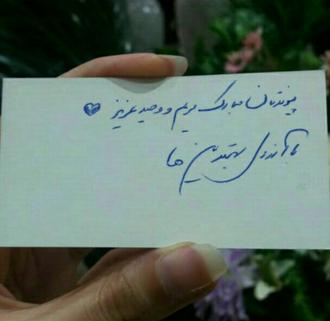 پیوندتان مبارک مریم و وحید عزیز
با آرزوی بهترین ها